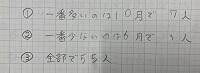 ① 一番多いのは10月で 7人
② 一番少ないのは6月で 3人
③ 全部で55人